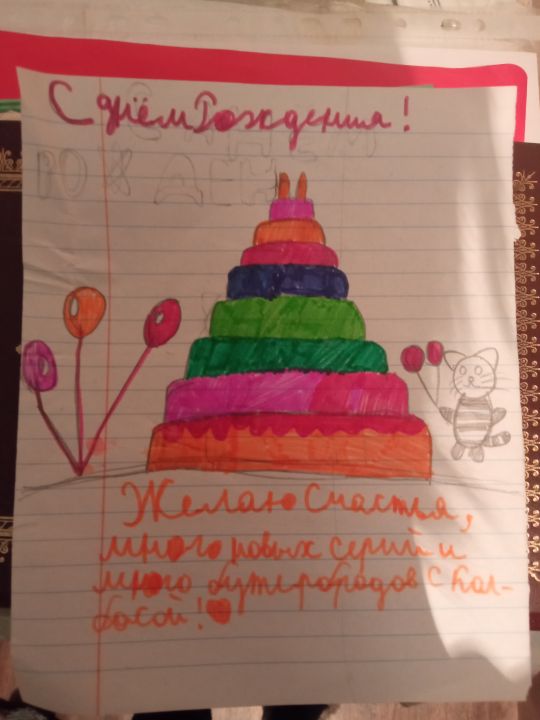 С днём Рождения!
РОЖДЕН
Желаю счастья,
много новых серий и
много бутербродов с кол-
басой!